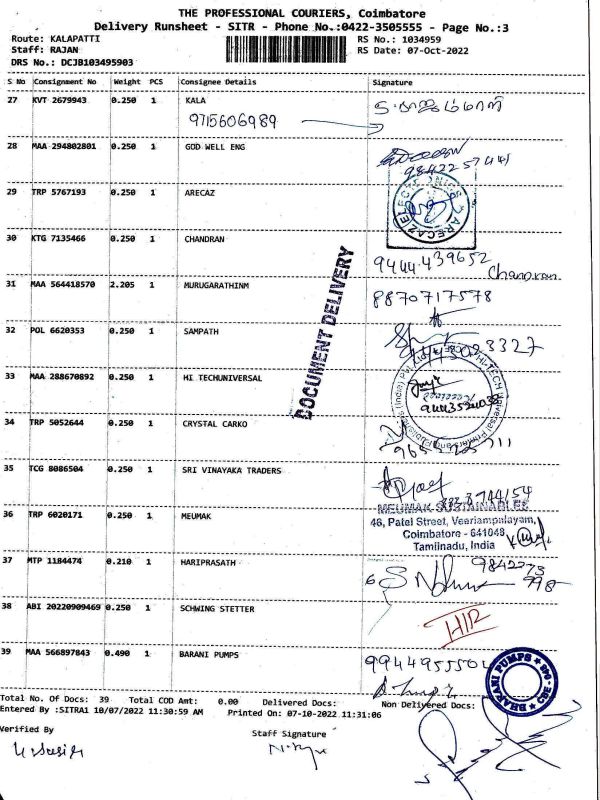 THE PROFESSIONAL COURIERS, Coimbatore
Delivery Runsheet - SITR - Phone No.:0422-3505555 - Page No.:3
Route: KALAPATTI RS No.: 1034959
Staff: RAJAN RS Date: 07-Oct-2022
DRS No.: DCJB103495903
S No Consignment No Weight PCS Consignee Details Signature
27 KVT 2679943 0.250 1 KALA
9715606989
28 MAA 294802801 0.250 1 GOD WELL ENG
9842257441
29 TRP 5767193 0.250 1 ARECAZ
30 KTG 7135466 0.250 1 CHANDRAN
9444439652 Chandran
31 MAA 564418570 2.205 1 MURUGARATHINM
8870717578
DOCUMENT DELIVERY
32 POL 6620353 0.250 1 SAMPATH
33 MAA 288670892 0.250 1 HI TECHUNIVERSAL
34 TRP 5052644 0.250 1 CRYSTAL CARKO
35 TCG 8086504 0.250 1 SRI VINAYAKA TRADERS
36 TRP 6020171 0.250 1 MEUMAK
MEUMAK SUSTAINABLES
46, Patel Street, Veeriampalayam,
Coimbatore - 641048
Tamilnadu, India
37 MTP 1184474 0.210 1 HARIPRASATH
9842273
998
38 ABI 20220909469 0.250 1 SCHWING STETTER
39 MAA 566897843 0.490 1 BARANI PUMPS
9944955504
BHARANI PUMPS
Total No. Of Docs: 39 Total COD Amt: 0.00 Delivered Docs: Non Delivered Docs:
Entered By :SITRA1 10/07/2022 11:30:59 AM Printed On: 07-10-2022 11:31:06
Verified By Staff Signature